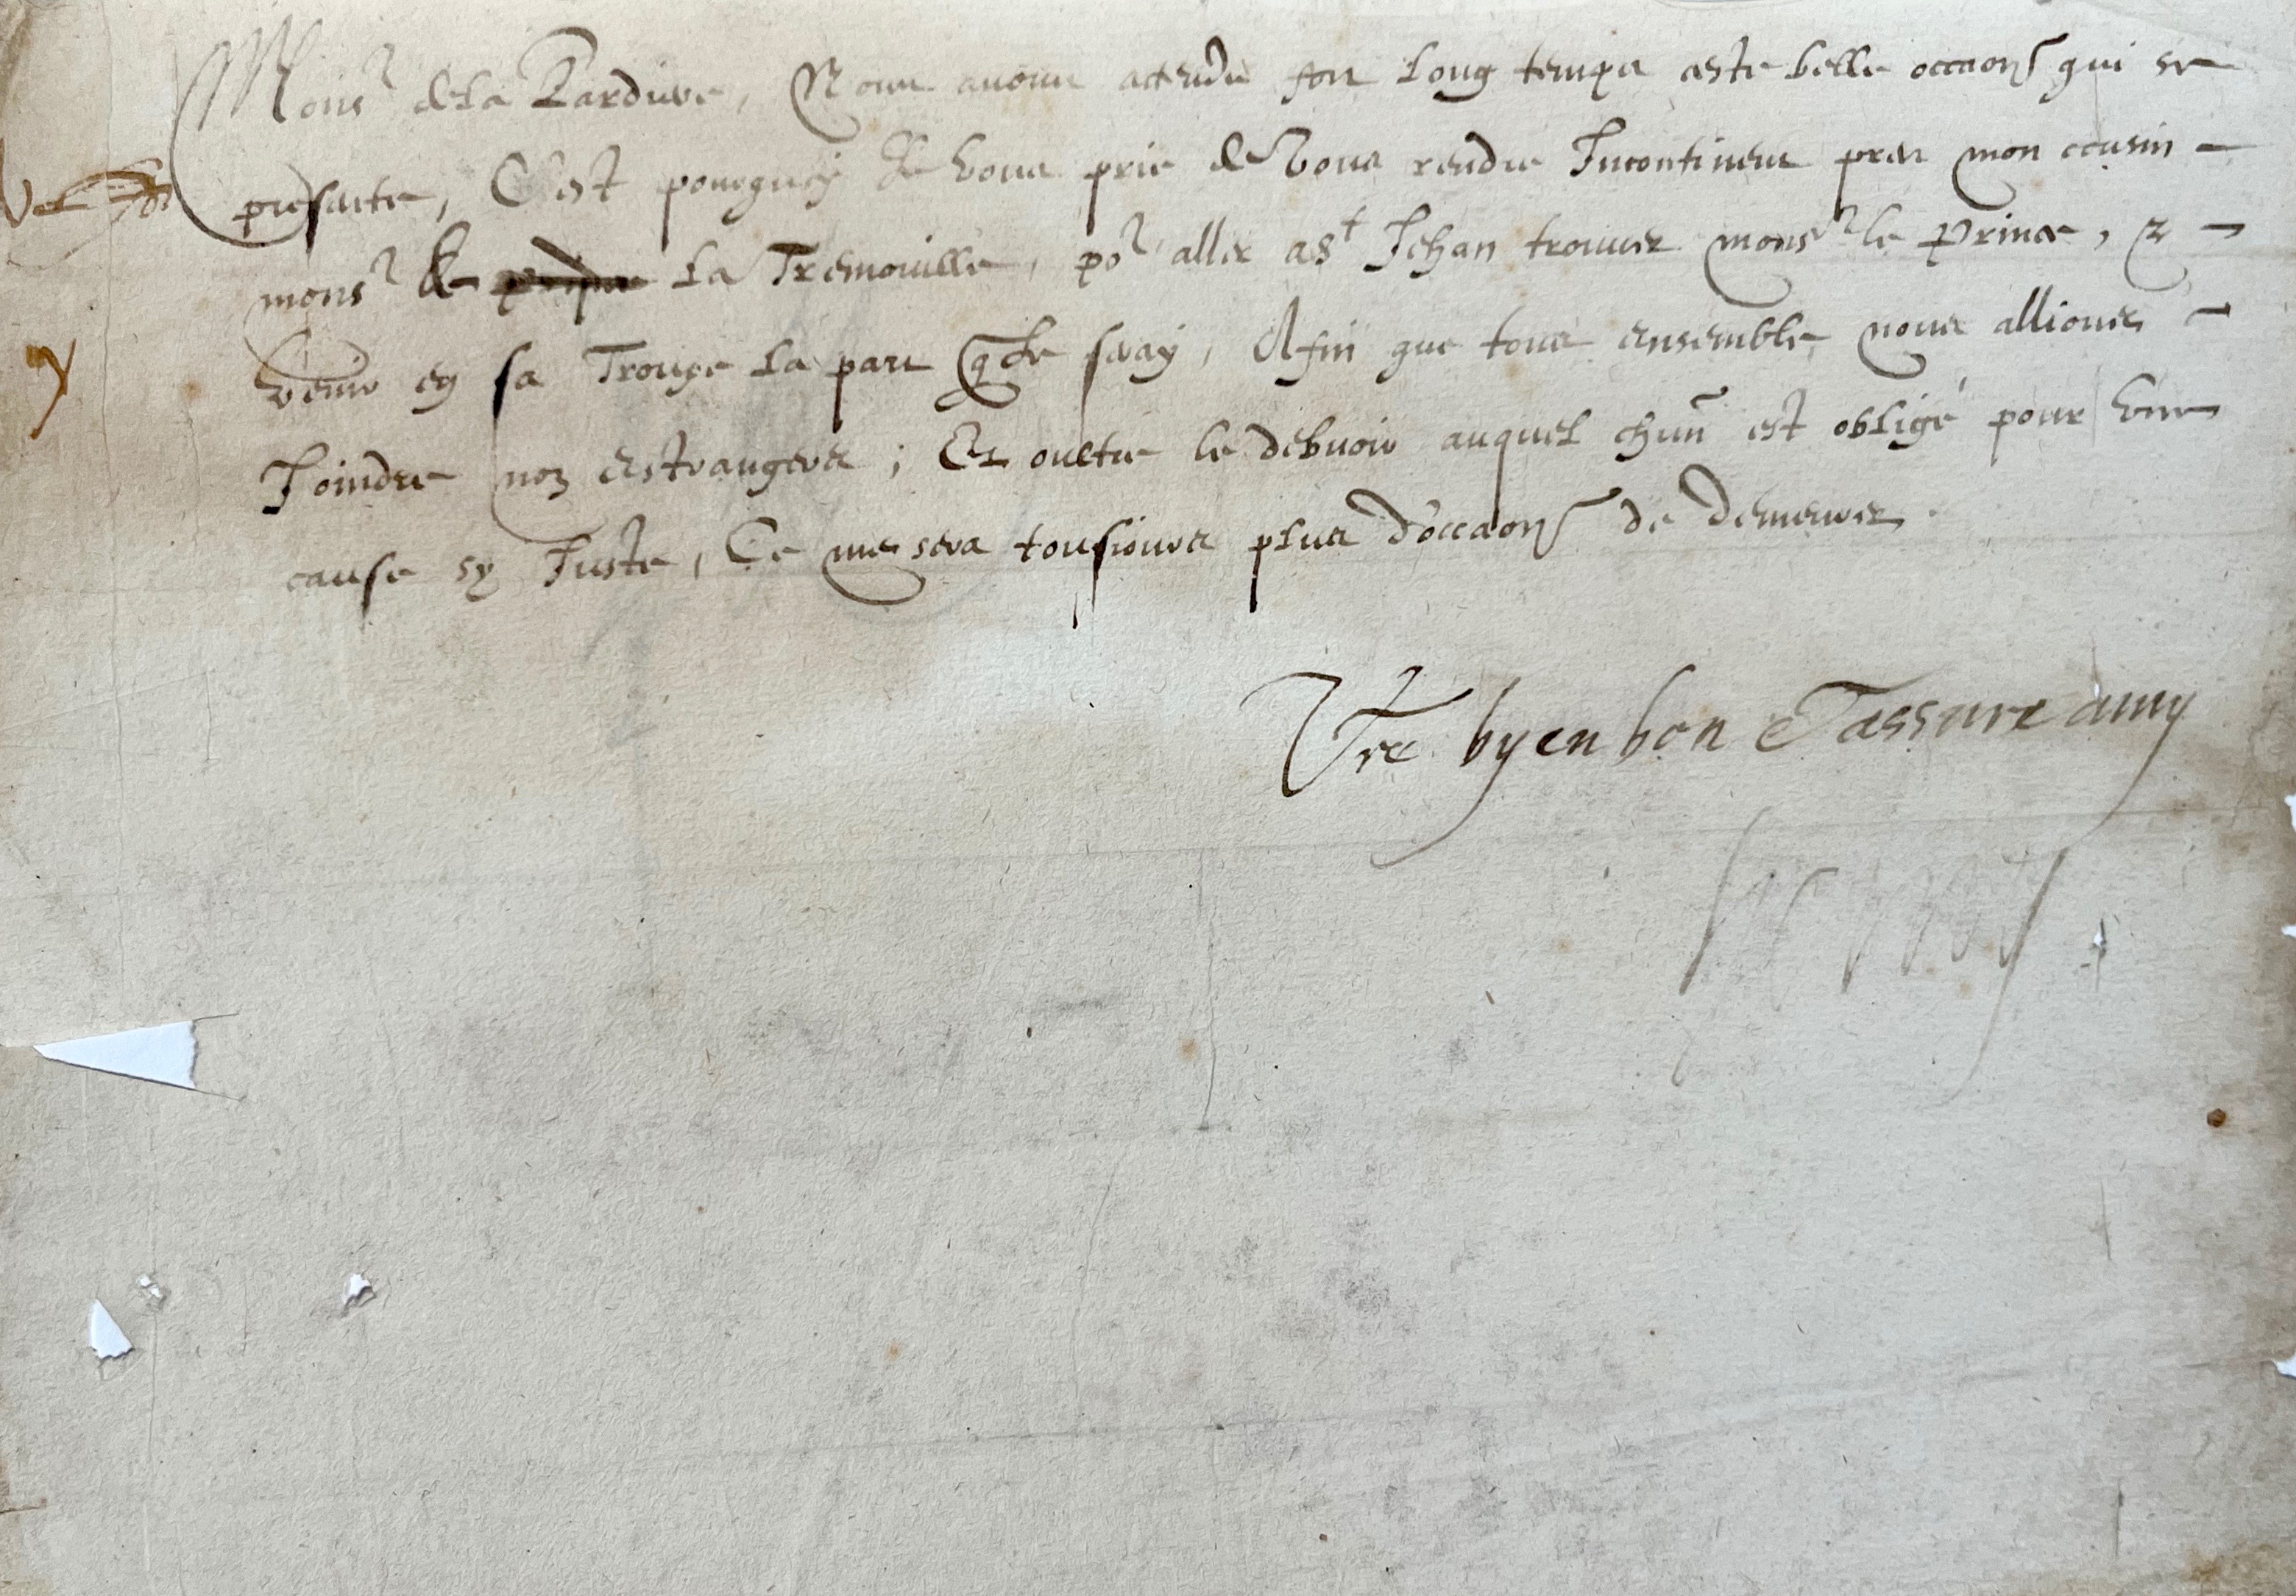 Mons^r de la Tardive, Nous avons attendu fort long temps ceste belle occaon~ qui se
presante, C'est pourquoy Je vous prie de vous rendre Incontinent pres mon cousin
mons^r de la Tremouille, po^r aller a S^t Jehan trouver mons^r le prince, &
venir en sa Troupe la part q Je seray, Afin que tous ensemble nous allions
Joindre noz estrangers ; Et oultre le debvoir auquel ch~un est obligé pour une
cause sy Juste, Ce me sera tousjours plus d'occaon~ de demeurer.
Vre byen bon et assure amy
Henry